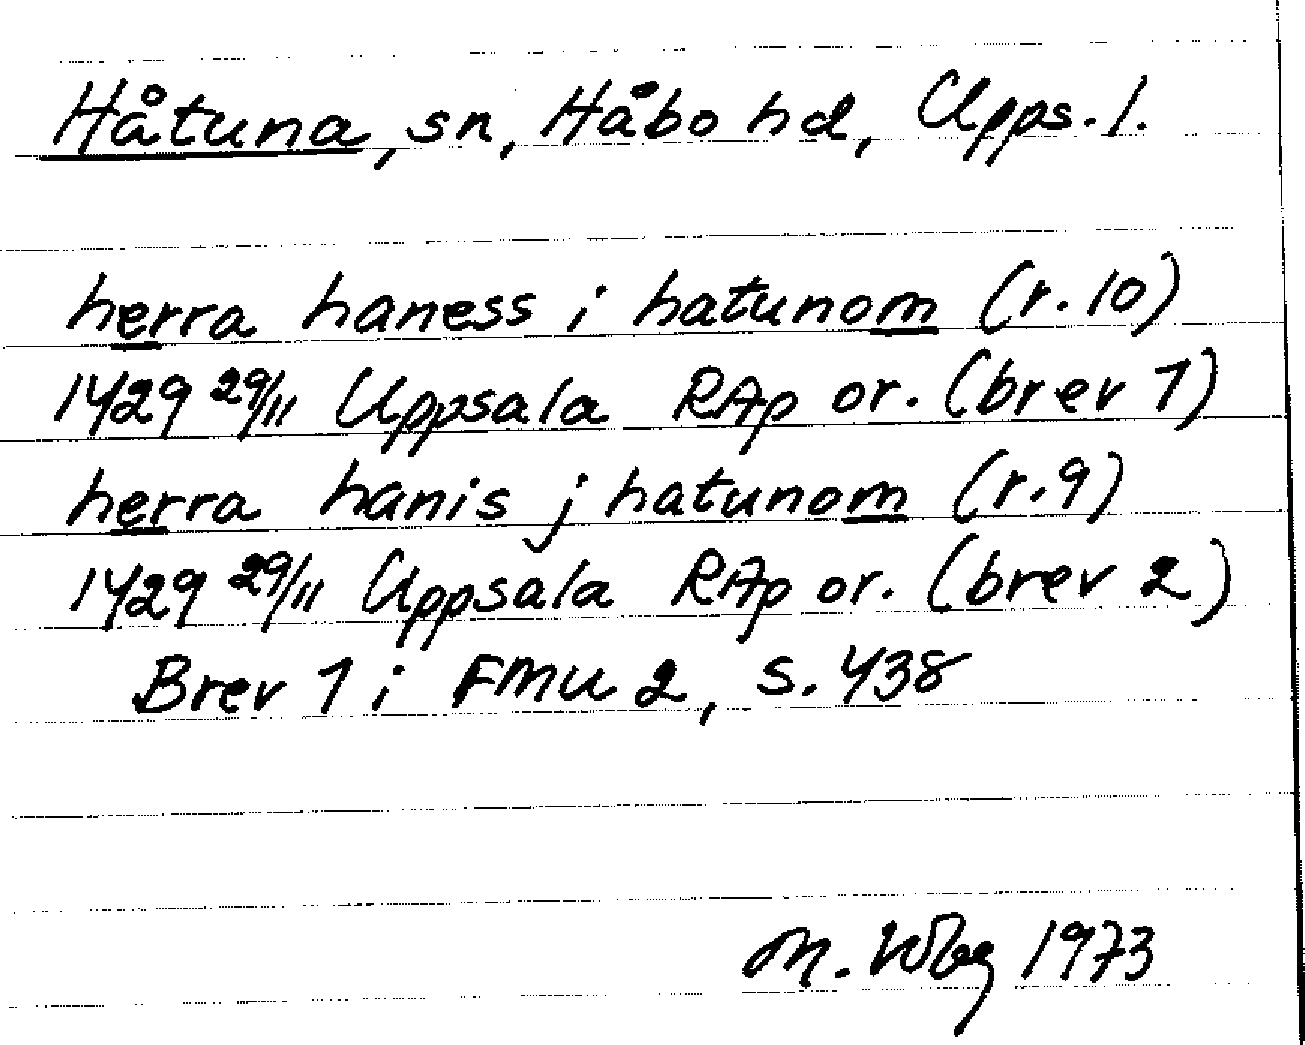 Håtuna, sn, Håbo hd, Upps. l.
herra haness i hatunom (r. 10)
1429 29/11 Uppsala RAp or. (brev 1)
herra hanis j hatunom (r. 9)
1429 29/11 Uppsala RAp or. (brev 2)
Brev 1 i FMU 2, s. 438
M. Wbg 1973